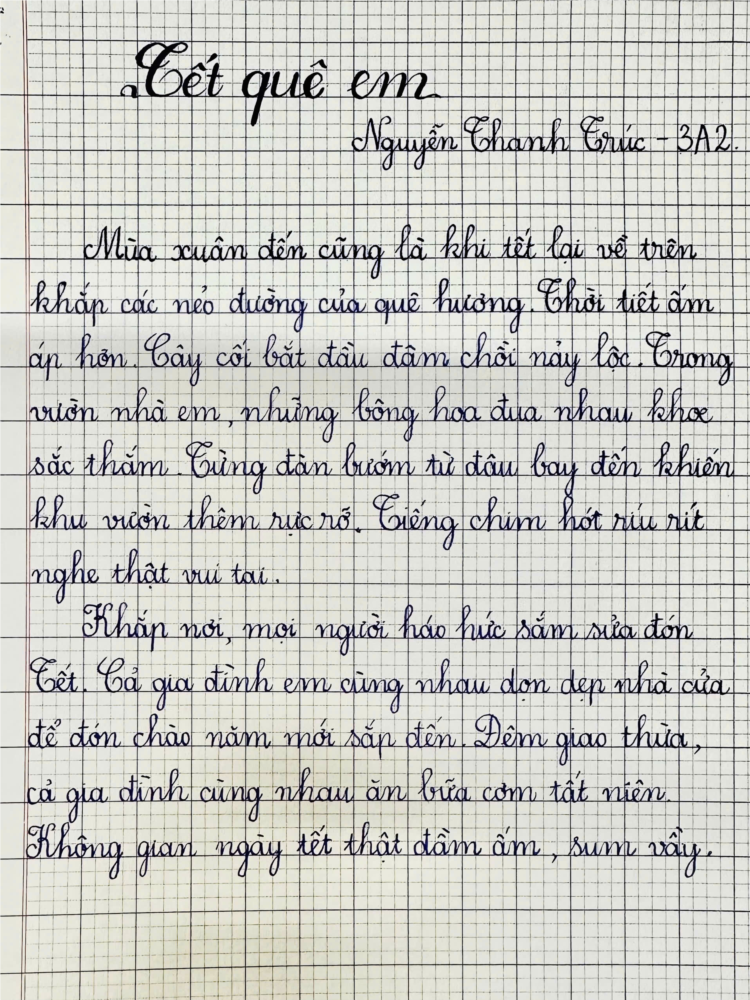 Tết quê em
Nguyễn Thanh Trúc - 3A2.
Mùa xuân đến cũng là khi tết lại về trên
khắp các nẻo đường của quê hương. Thời tiết ấm
áp hơn. Cây cối bắt đầu đâm chồi nảy lộc. Trong
vườn nhà em, những bông hoa đua nhau khoe
sắc thắm. Từng đàn bướm từ đâu bay đến khiến
khu vườn thêm rực rỡ. Tiếng chim hót ríu rít
nghe thật vui tai.
Khắp nơi, mọi người háo hức sắm sửa đón
Tết. Cả gia đình em cùng nhau dọn dẹp nhà cửa
để đón chào năm mới sắp đến. Đêm giao thừa,
cả gia đình cùng nhau ăn bữa cơm tất niên.
Không gian ngày tết thật đầm ấm, sum vầy.